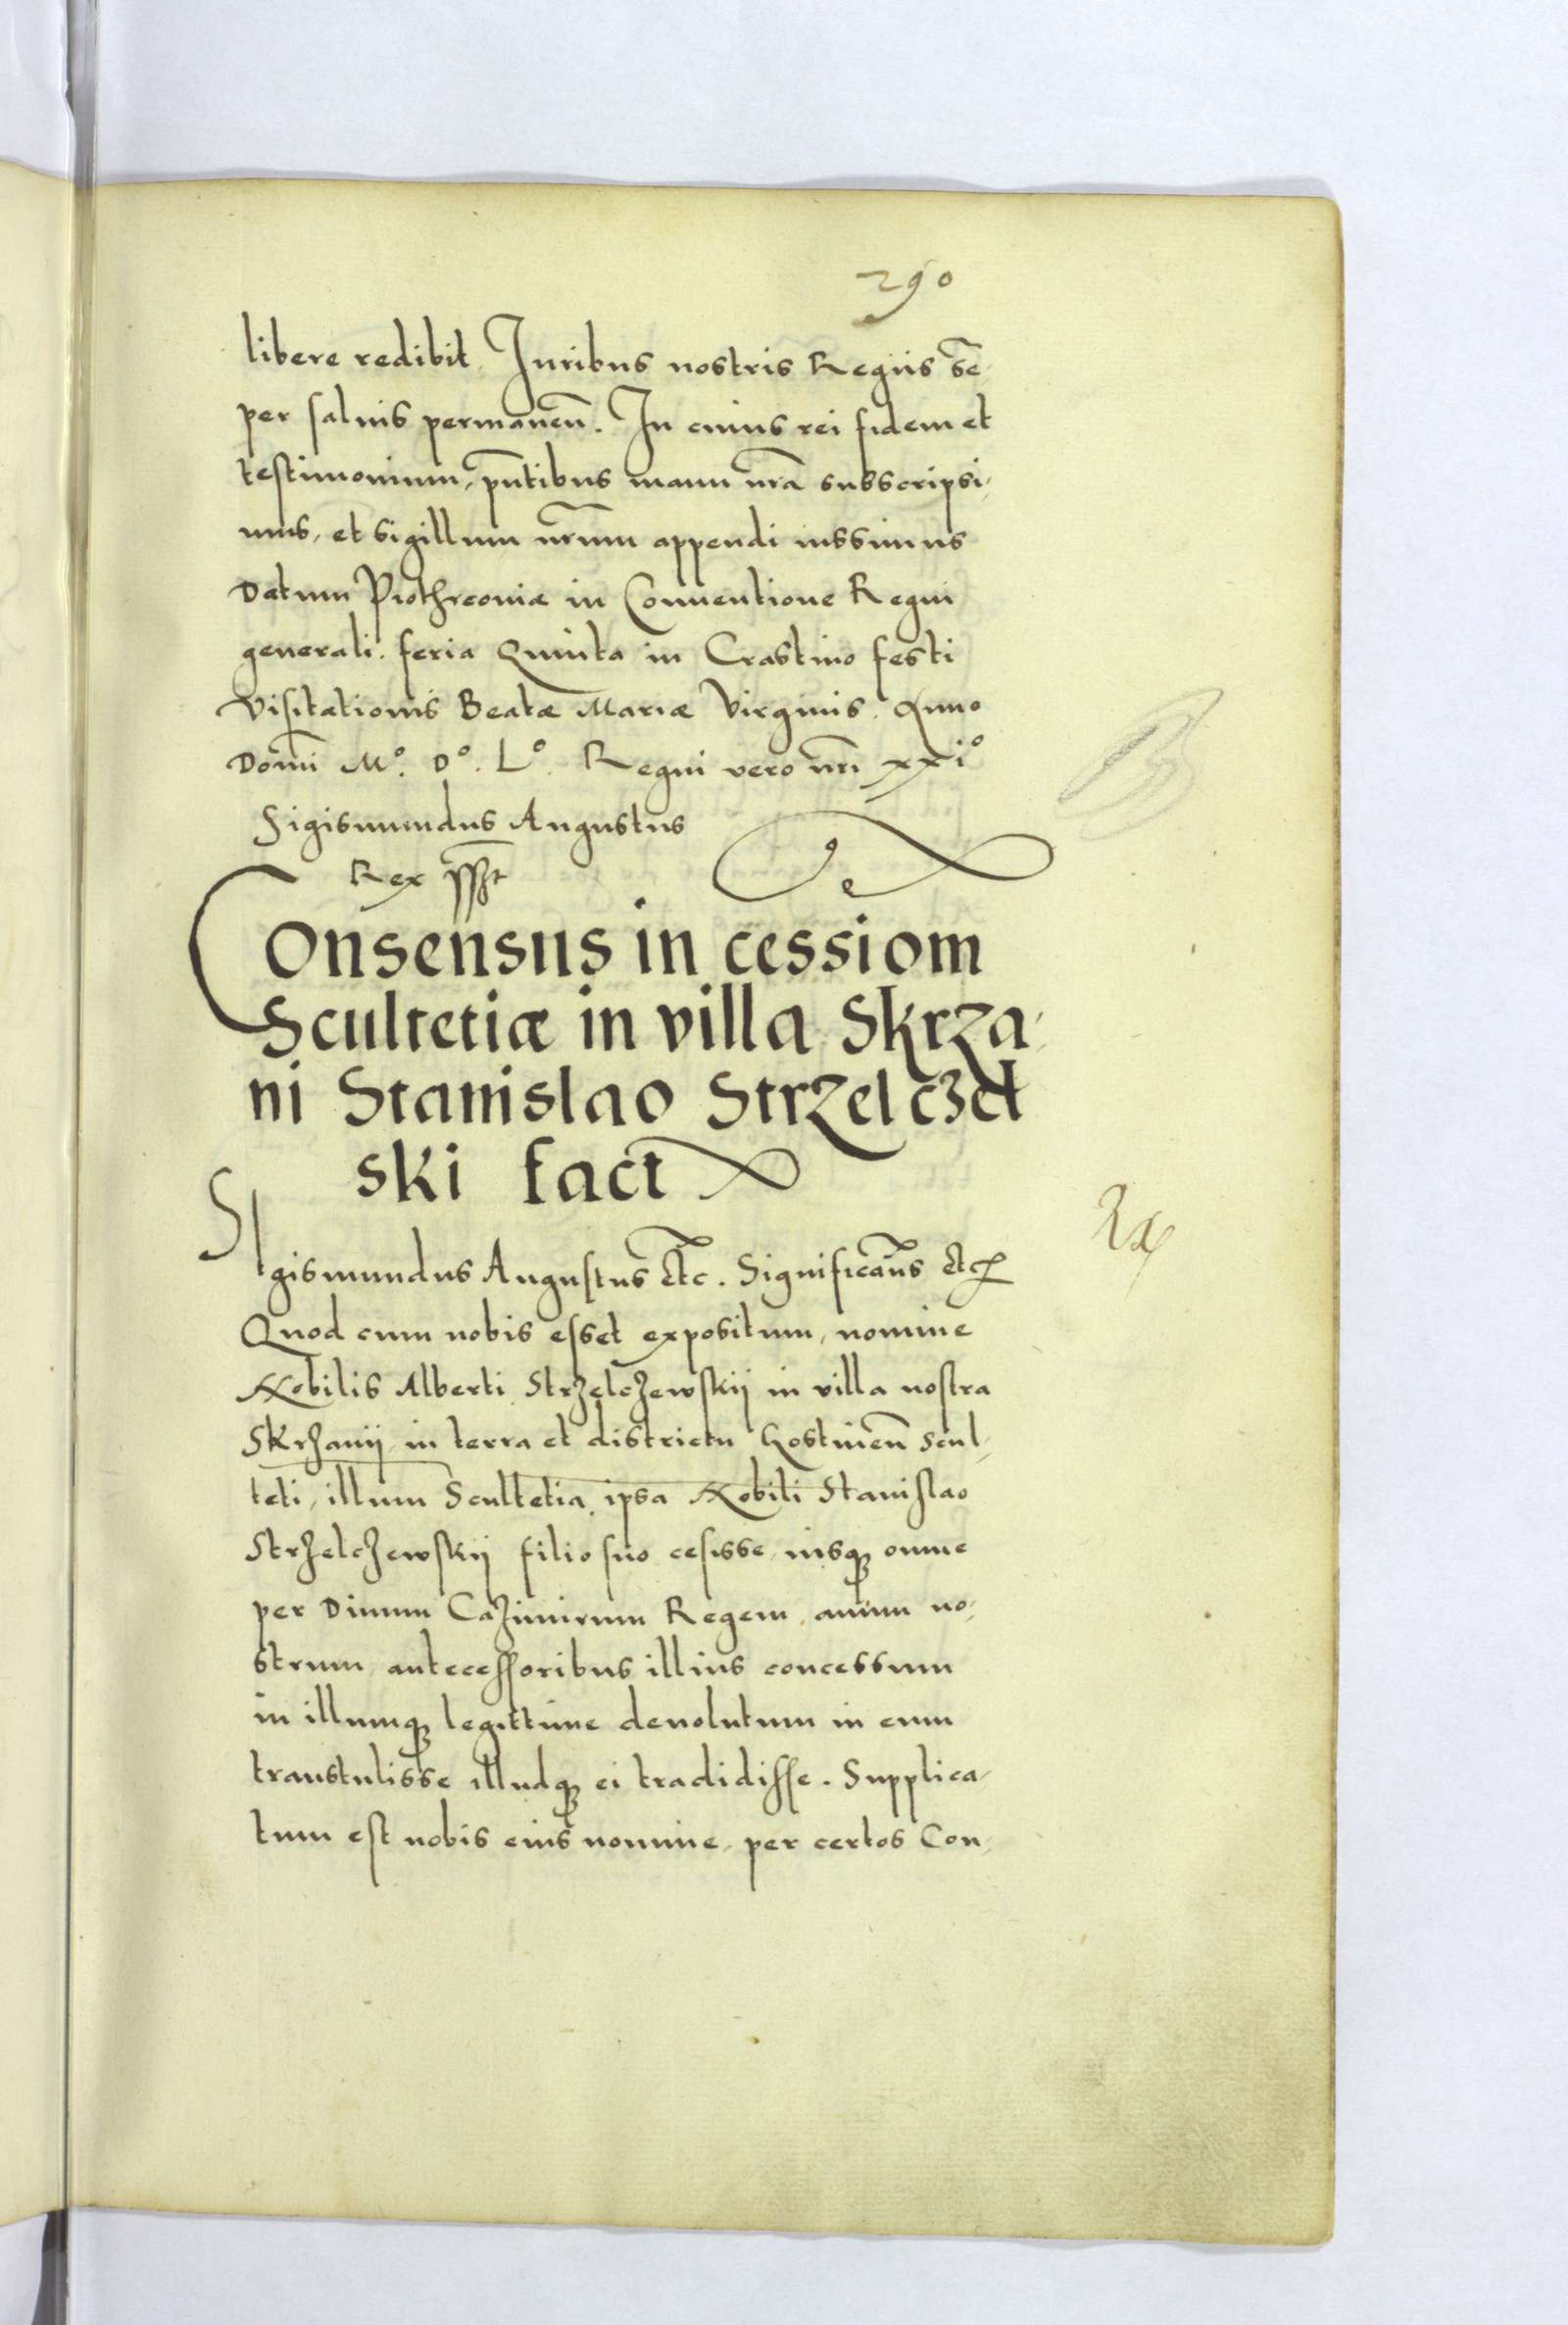 290
libere redibit, Iuribus nostris Regiis sē
per saluis permaneñ. In cuius rei fidem et
testimonium, pñtibus manu nrã subscripsi,
mus, et sigillum nr̃um appendi iussimus
Datum Piothrcoviæ in Conuentione Regni
generali. feria Quinta in Crastino festi
Visitationis Beatæ Mariæ Virginis. Anno
Domĩ Mº. Dº. Lº. Regni vero nr̃i xxiº
Sigismundus Augustus
Rex
Consensus in cessiom
Scultetiæ in villa Skrza,
ni Stanislao Strzelczew
ski fact
Sigismundus Augustus etc. Significam̃s etc
Quod cum nobis esset expositum, nomine
Nobilis Alberti Strzelczewskij in villa nostra
Skrzanij in terra et districtu Gostineñ scul,
teti, illum Scultetia ipsa Nobili Stanislao
Strzelczewskij filio suo cesisse, iusq; omne
per Diuum Cazimirum Regem, auum no,
strum antecessoribus illius concessum
in illumq; legittime deuolutum in eum
transtulisse illudq; ei tradidisse. Supplica,
tum est nobis eius nomine, per certos Con,